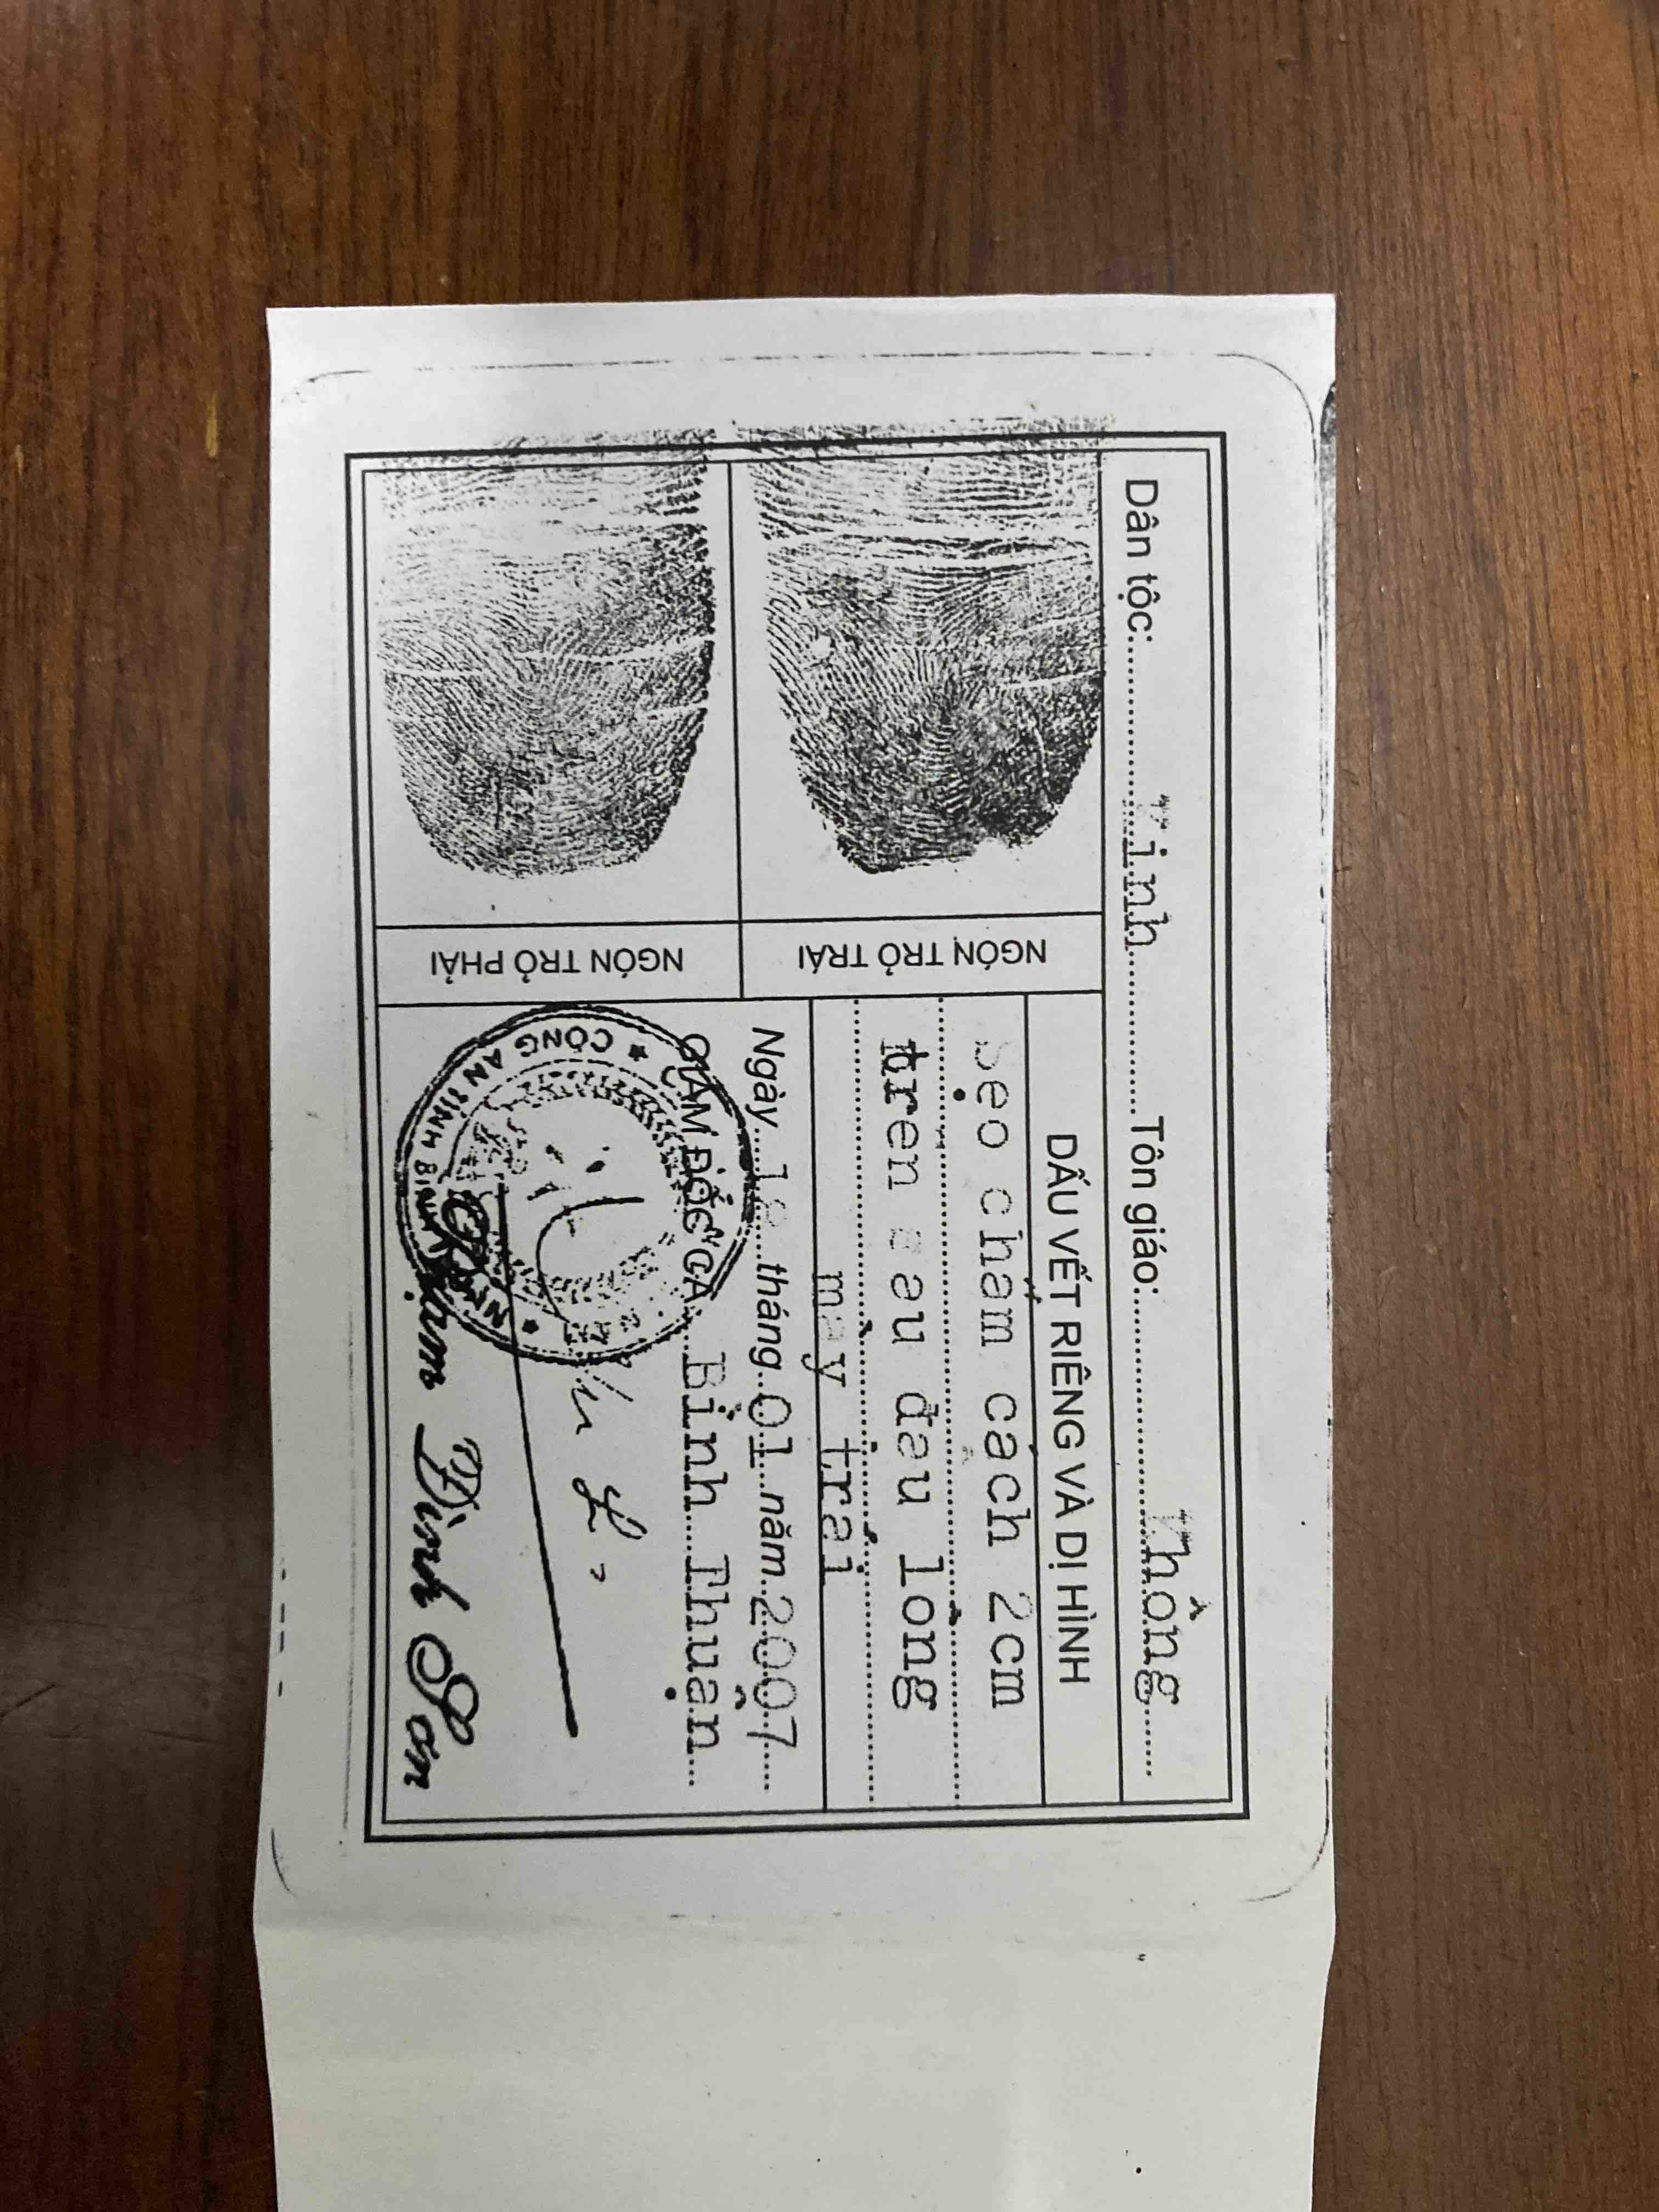 Dân tộc: Kinh Tôn giáo: Không
NGÓN TRỎ TRÁI
NGÓN TRỎ PHẢI
DẤU VẾT RIÊNG VÀ DỊ HÌNH
Sẹo chấm cách 2cm
trên sau đầu lông
mày trái
Ngày tháng 01 năm 2007
GIÁM ĐỐC CA Bình Thuận
★ CÔNG AN TỈNH BÌNH THUẬN ★
Phạm Đình Sơn